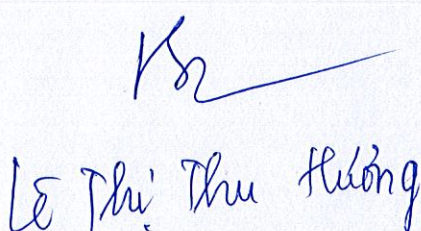 Lê Thị Thu Hương